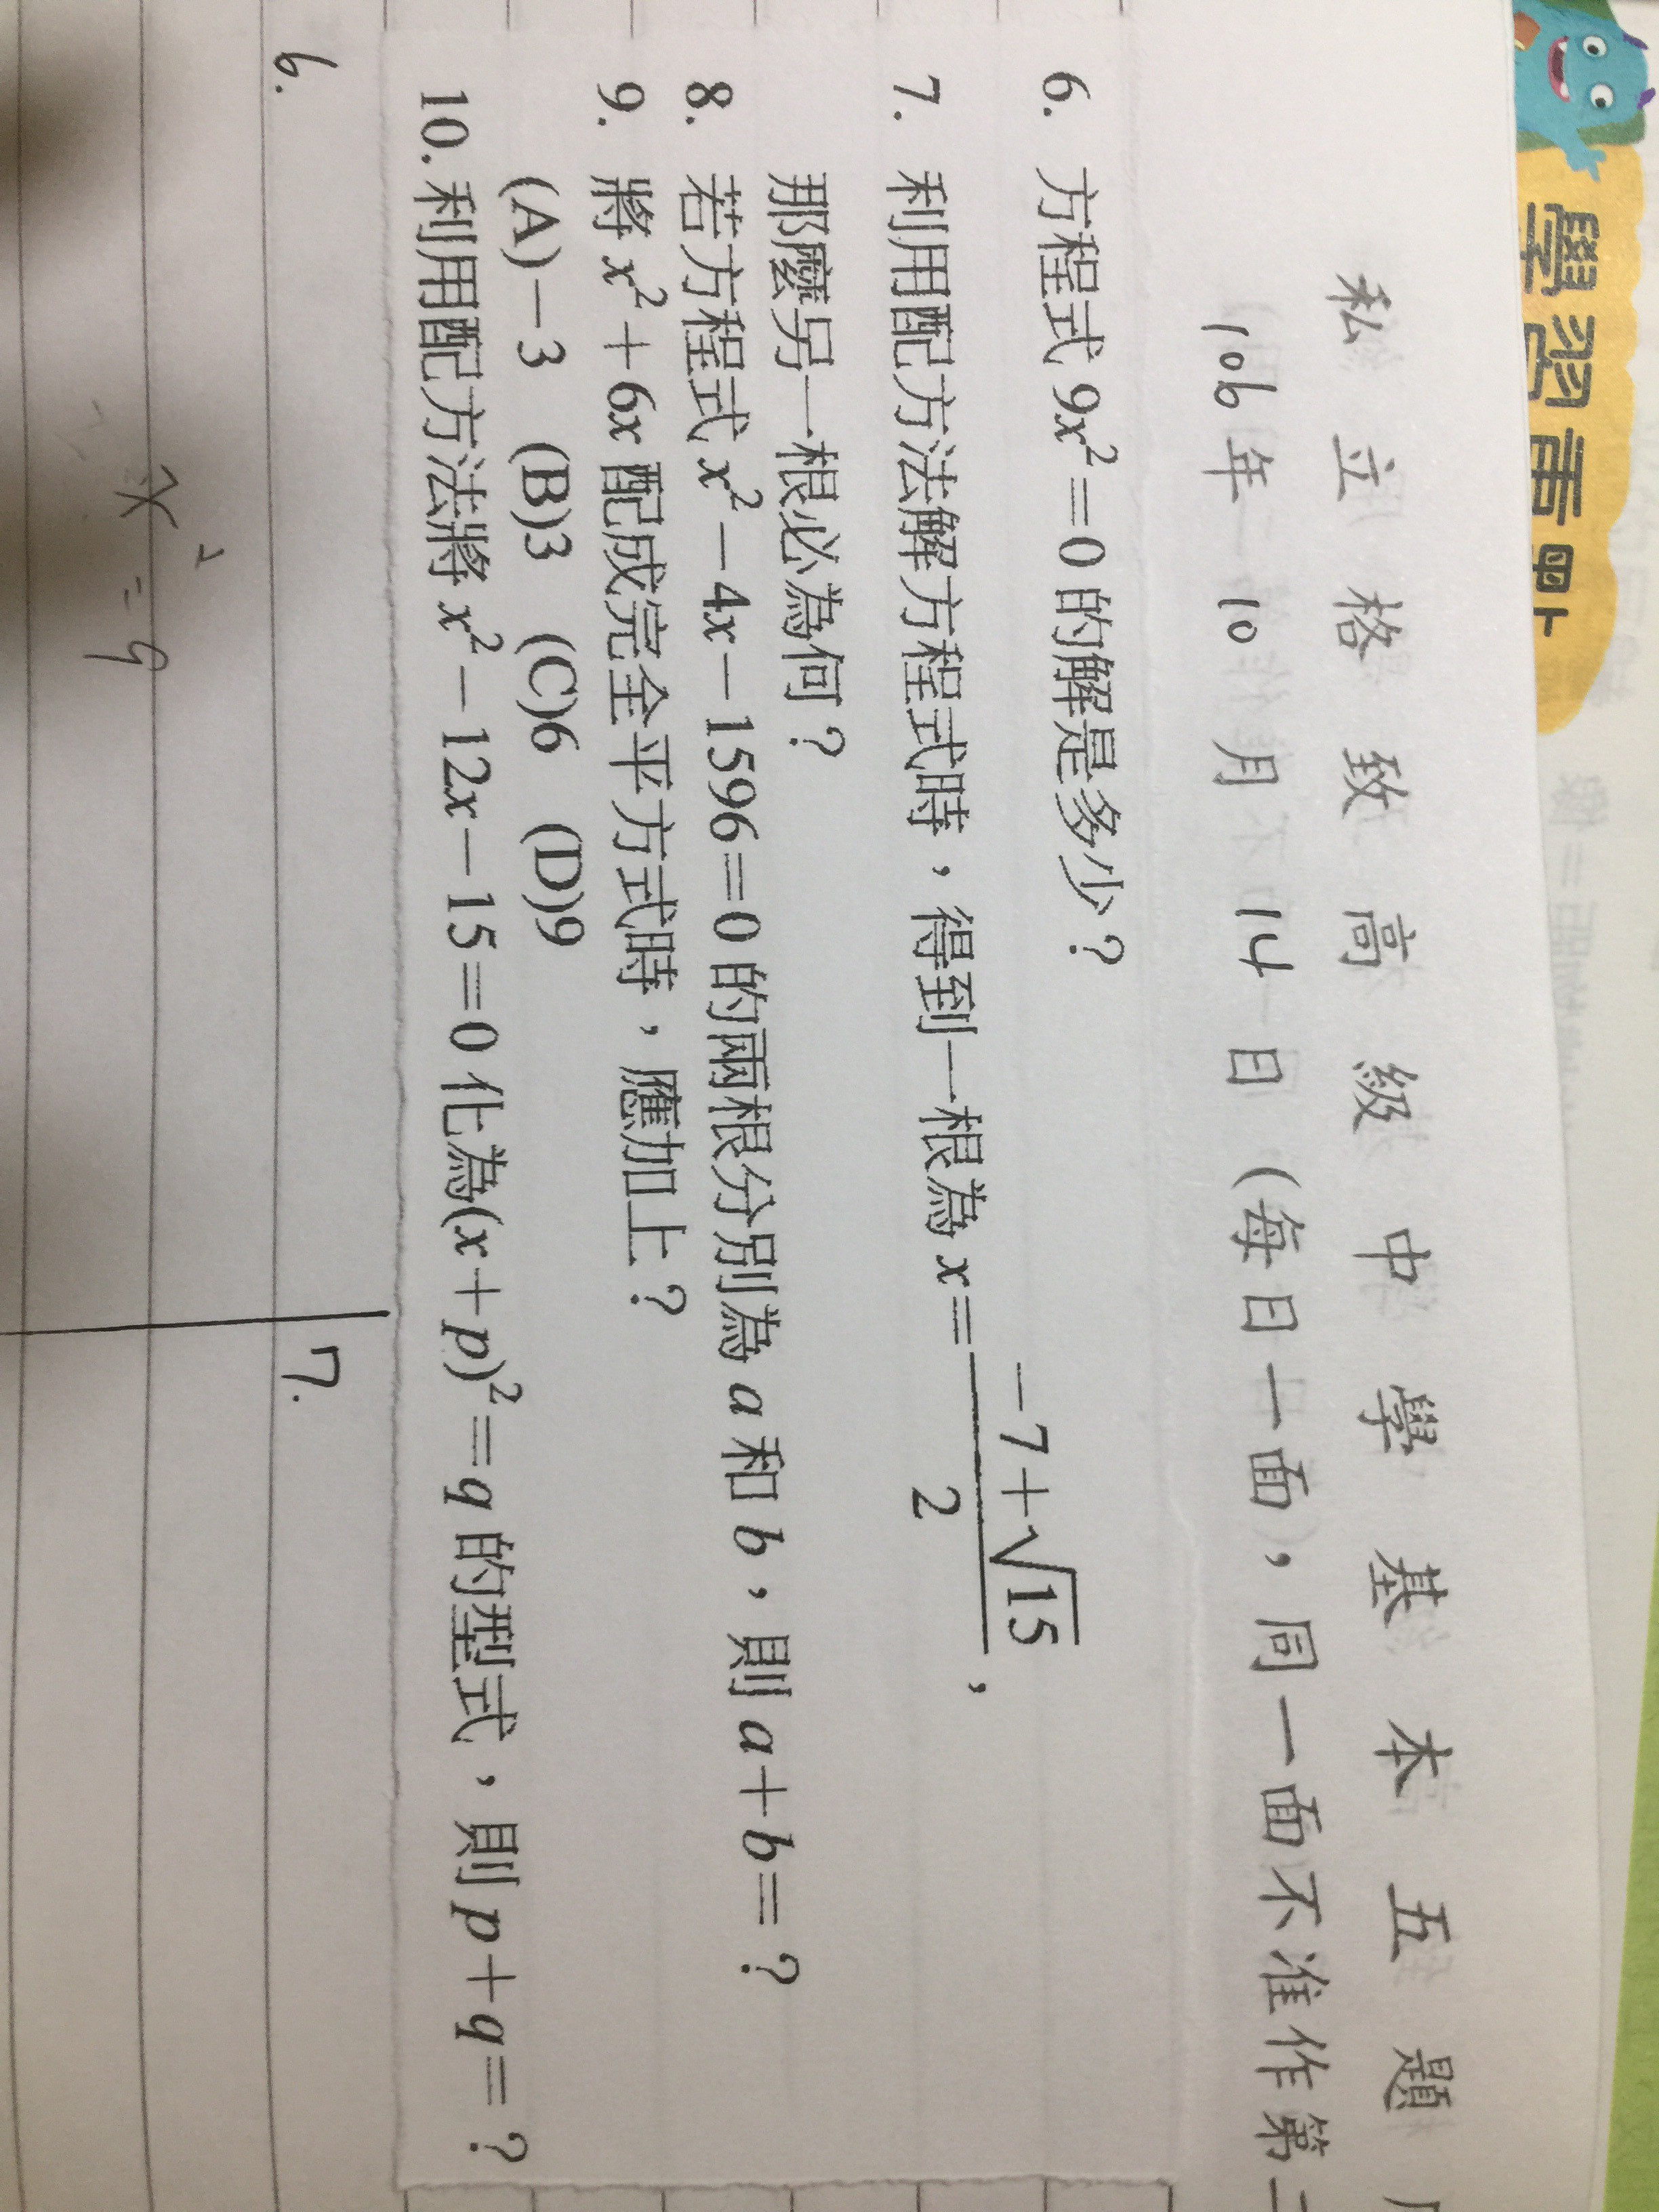 學習重點
私立格致高級中學基本五題
106年10月14日(每日一面),同一面不准作第
6. 方程式 9x²=0 的解是多少?
7. 利用配方法解方程式時,得到一根為 x=(-7+√15)/2,
那麼另一根必為何?
8. 若方程式 x²-4x-1596=0 的兩根分別為 a 和 b,則 a+b=?
9. 將 x²+6x 配成完全平方式時,應加上?
(A)-3 (B)3 (C)6 (D)9
10. 利用配方法將 x²-12x-15=0 化為(x+p)²=q 的型式,則 p+q=?
6. 7.
x²=9